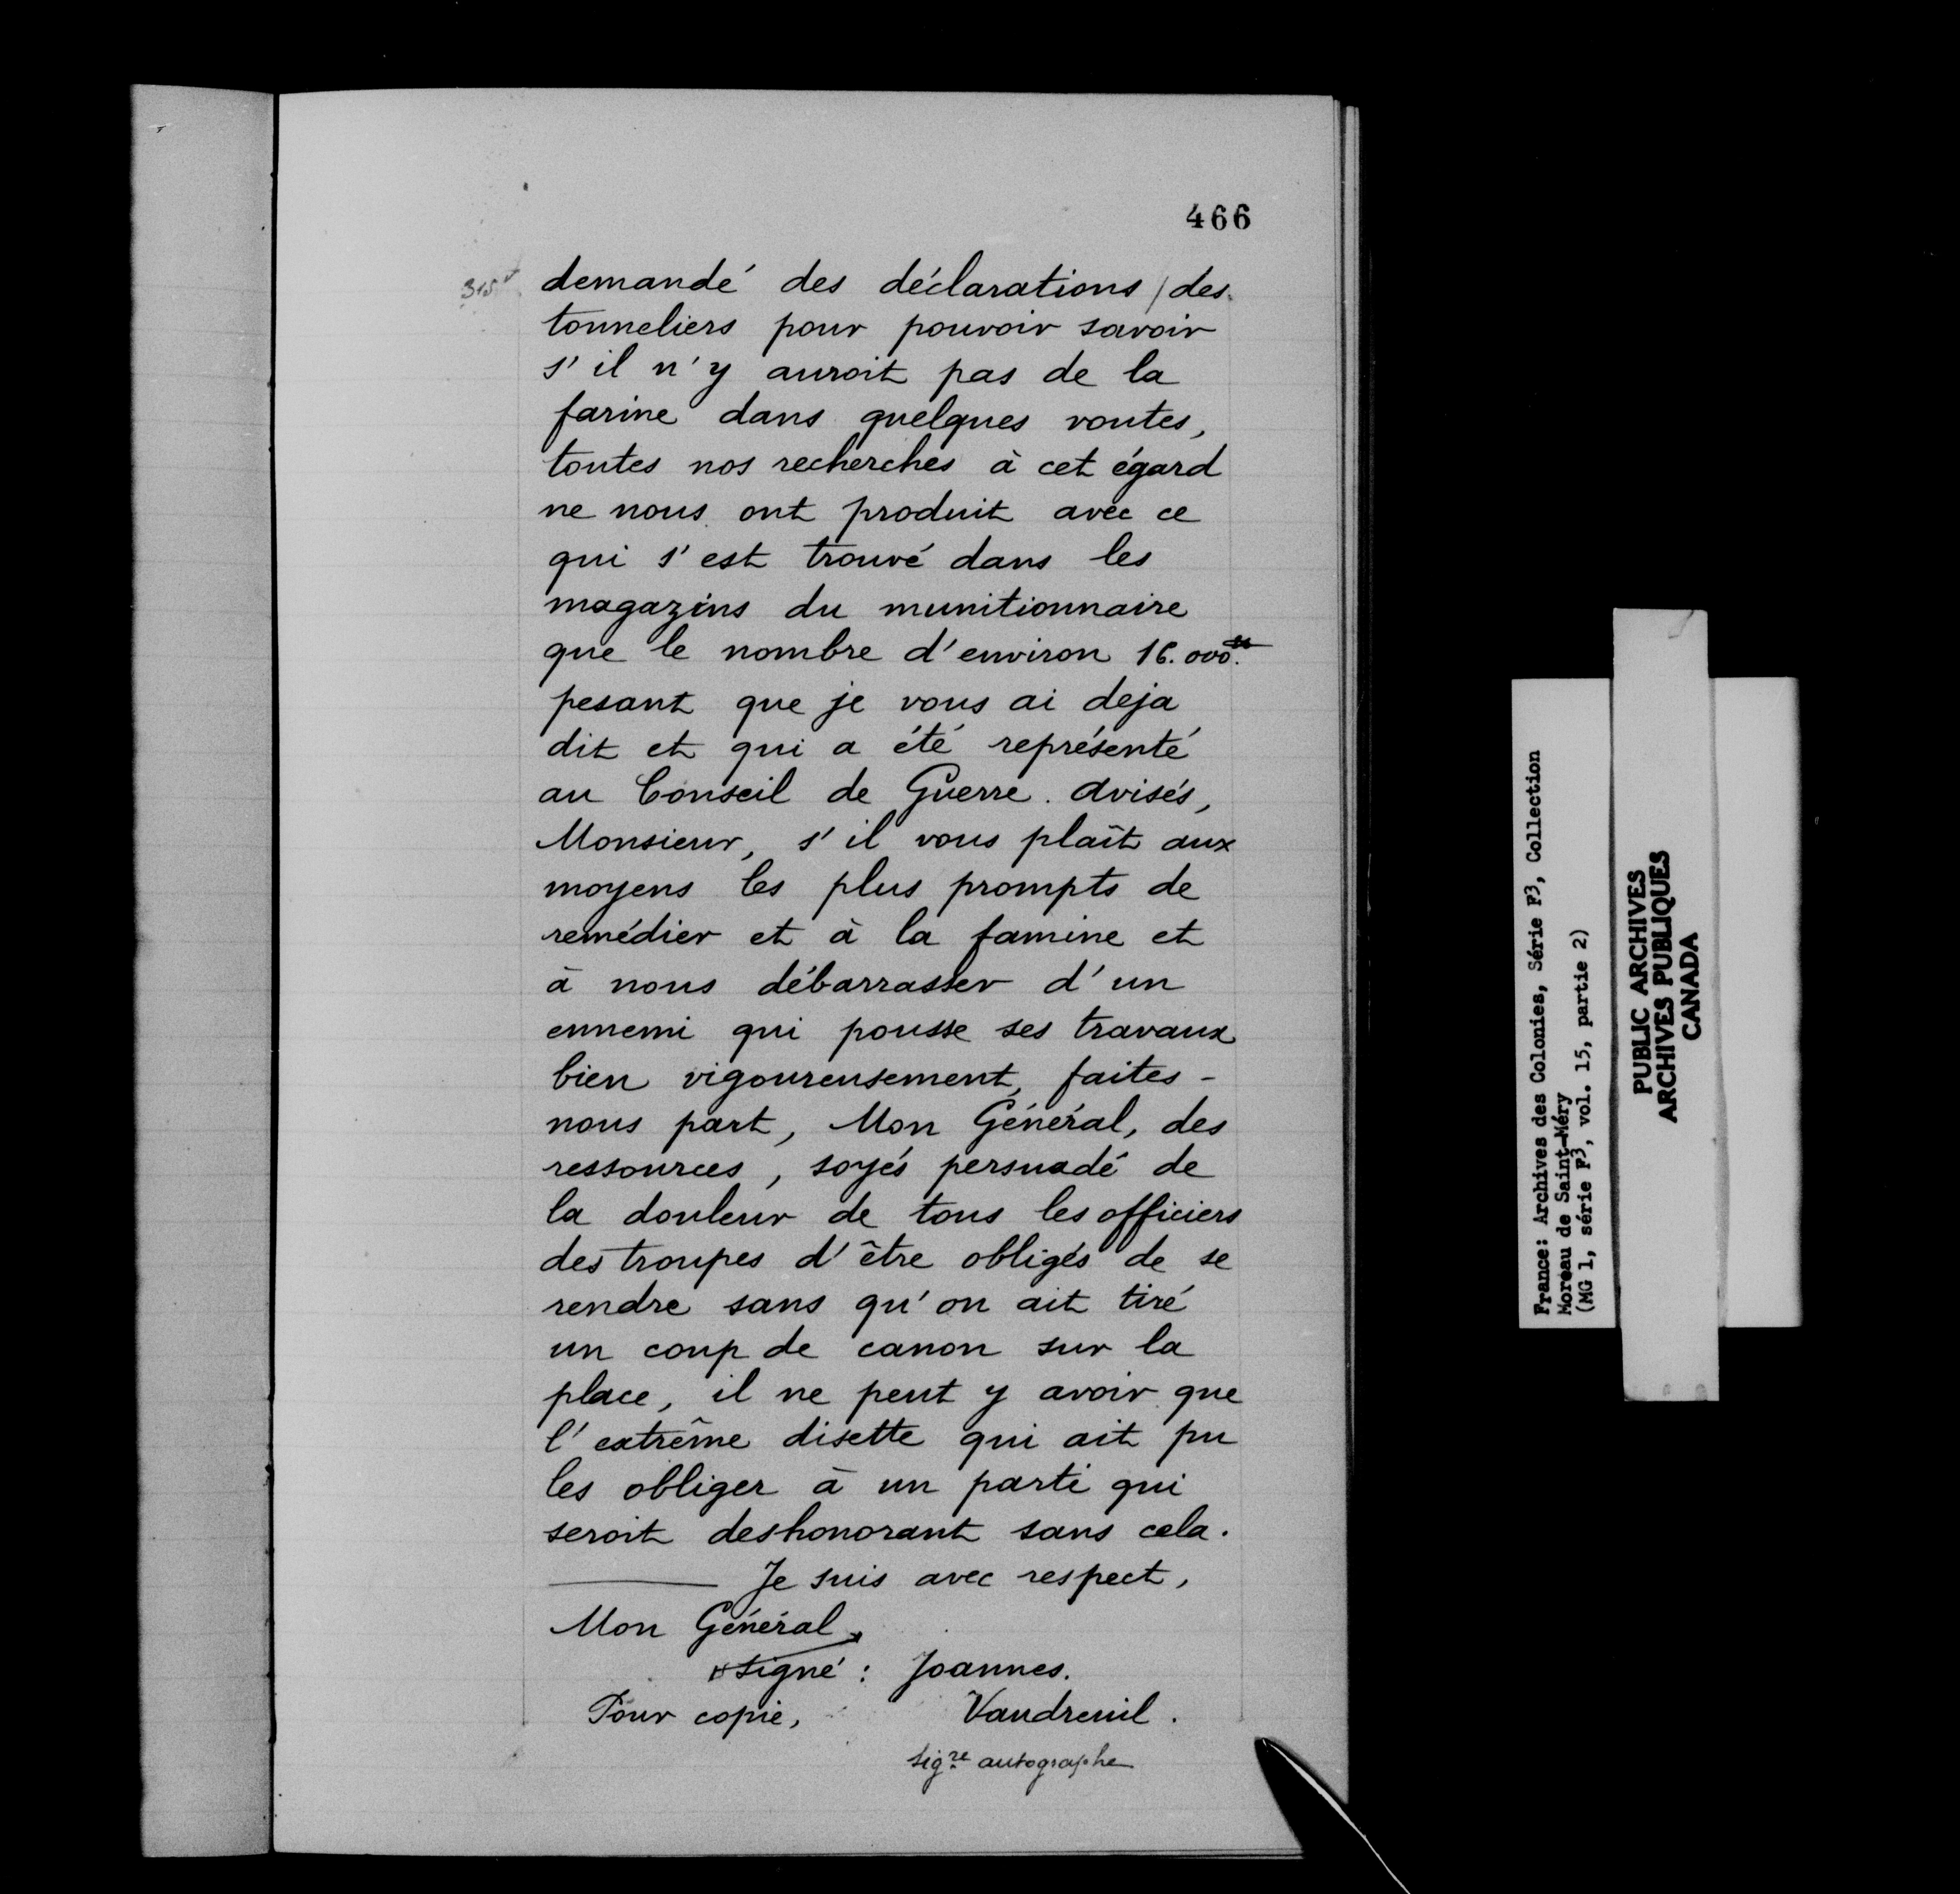 466
315v demandé des déclarations / des
tonneliers pour pouvoir savoir
s'il n'y auroit pas de la
farine dans quelques voutes,
toutes nos recherches à cet égard
ne nous ont produit avec ce
qui s'est trouvé dans les
magazins du munitionnaire
que le nombre d'environ 16.000.
pesant que je vous ai deja
dit et qui a été représenté
au Conseil de Guerre. avisés,
Monsieur, s'il vous plaît aux
moyens les plus prompts de
remédier et à la famine et
à nous débarrasser d'un
ennemi qui pousse ses travaux
bien vigoureusement, faites-
nous part, Mon Général, des
ressources, soyés persuadé de
la douleur de tous les officiers
des troupes d'être obligés de se
rendre sans qu'on ait tiré
un coup de canon sur la
place, il ne peut y avoir que
l'extrême disette qui ait pu
les obliger à un parti qui
seroit deshonorant sans cela.
Je suis avec respect,
Mon Général,
signé: Joannes.
Pour copie, Vaudreuil.
sigre autographe
France: Archives des Colonies, Série F3, Collection
Moreau de Saint-Méry
(MG 1, série F3, vol. 15, partie 2)
PUBLIC ARCHIVES
ARCHIVES PUBLIQUES
CANADA